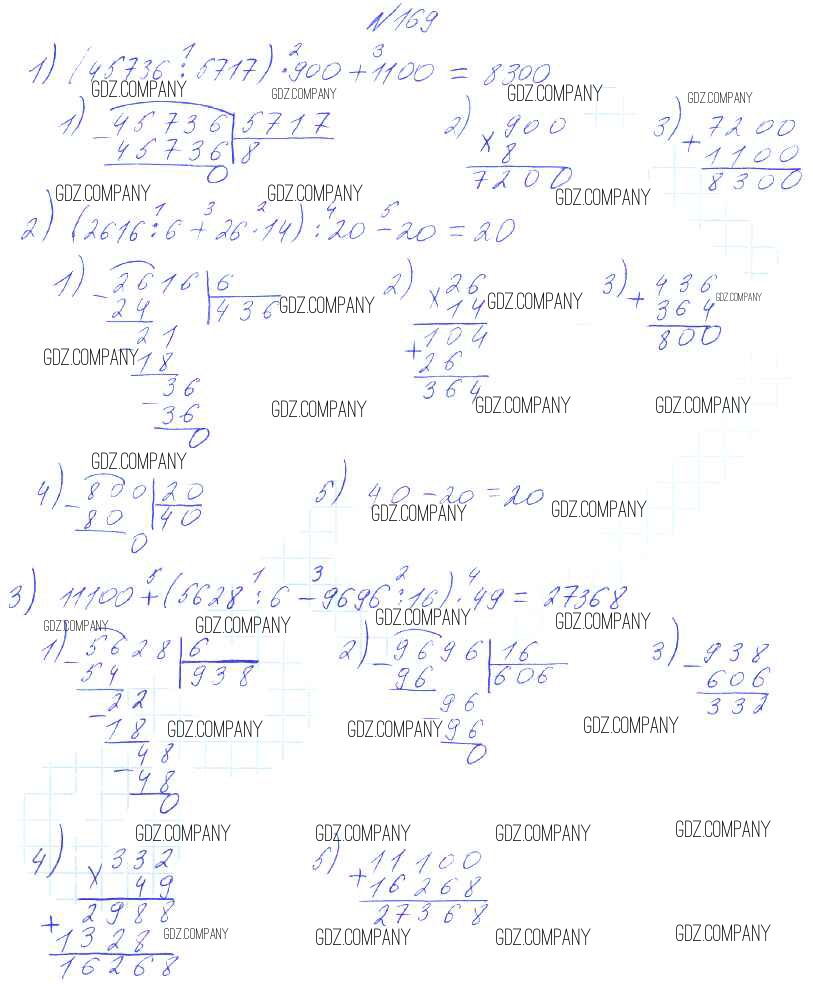 N169
1) (45736 : 5717) · 900 + 1100 = 8300
1 2 3
GDZ.COMPANY GDZ.COMPANY GDZ.COMPANY GDZ.COMPANY
1) - 45736 | 5717 2) × 900 3) + 7200
45736 | 8 8 1100
0 7200 8300
GDZ.COMPANY GDZ.COMPANY GDZ.COMPANY
1 3 2 4 5
2) (2616 : 6 + 26 · 14) : 20 - 20 = 20
1) - 2616 | 6 2) × 26 3) + 436
24 | 436 GDZ.COMPANY 14 GDZ.COMPANY 364 GDZ.COMPANY
- 21 104 800
GDZ.COMPANY 18 + 26
- 36 364
36 GDZ.COMPANY GDZ.COMPANY GDZ.COMPANY
0
GDZ.COMPANY
4) - 800 | 20 5) 40 - 20 = 20
80 | 40 GDZ.COMPANY GDZ.COMPANY
0
5 1 3 2 4
3) 11100 + (5628 : 6 - 9696 : 16) · 49 = 27368
GDZ.COMPANY GDZ.COMPANY GDZ.COMPANY GDZ.COMPANY
1) - 5628 | 6 2) - 9696 | 16 3) - 938
54 | 938 96 | 606 606
- 22 - 96 332
18 GDZ.COMPANY GDZ.COMPANY 96 GDZ.COMPANY
- 48 0
48
0
GDZ.COMPANY GDZ.COMPANY GDZ.COMPANY GDZ.COMPANY
4) × 332 5) + 11100
49 16268
+ 2988 27368
1328 GDZ.COMPANY GDZ.COMPANY GDZ.COMPANY GDZ.COMPANY
16268